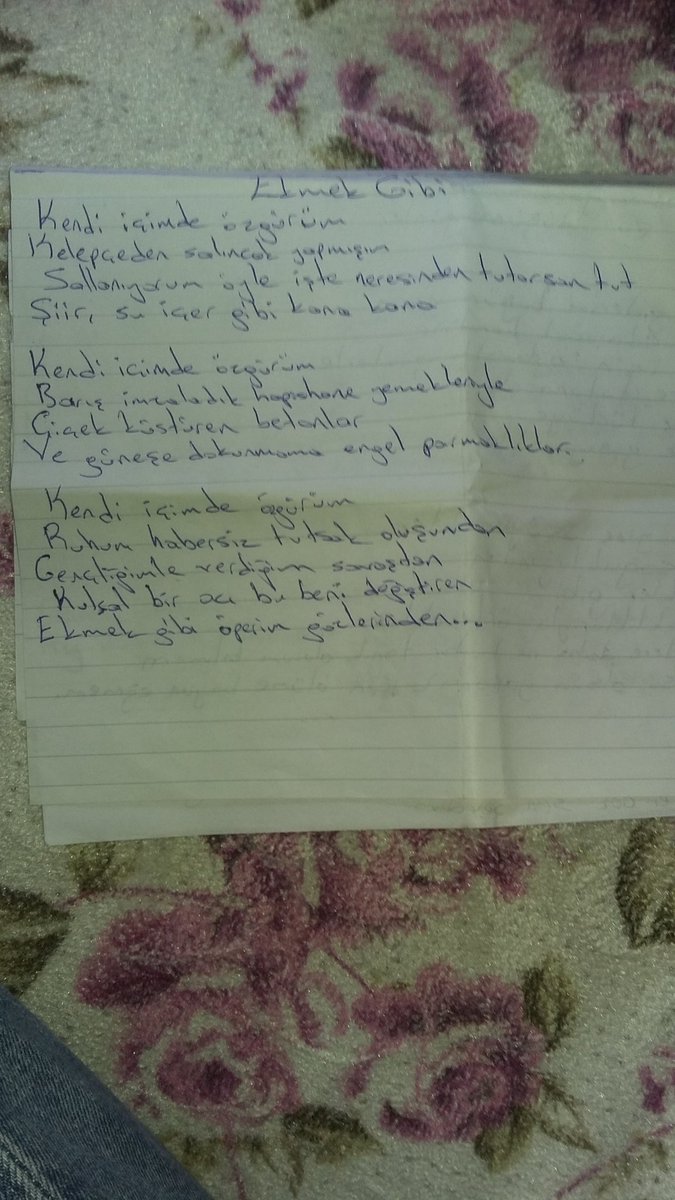 Ekmek Gibi
Kendi içimde özgürüm
Kelepçeden salıncak yapmışım
Sallanıyorum öyle işte neresinden tutarsan tut
Şiir, su içer gibi kana kana
Kendi içimde özgürüm
Barış imzaladık hapishane yemekleriyle
Çiçek küstüren betonlar
Ve güneşe dokunmama engel parmaklıklar..
Kendi içimde özgürüm
Ruhum habersiz tutsak oluşundan
Gençliğimle verdiğim savaştan
Kutsal bir acı bu beni değiştiren
Ekmek gibi öperim gözlerinden...